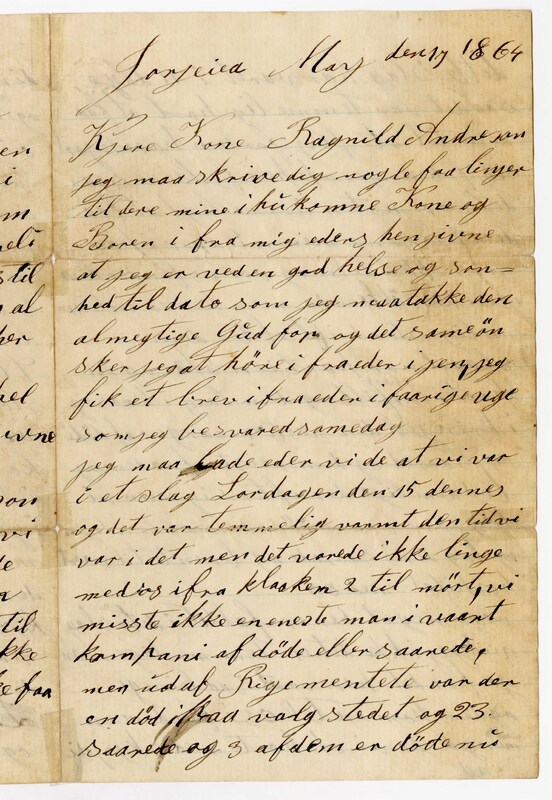 Jorjeiea May den 17 1864
Kjere Kone Ragnild Andreson
jeg maa skrive dig nogle faa linjer
til dere mine ihukomne Kone og
Boren i fra mig eders henjivne
at jeg er ved en god helse og son=
hed til dato som jeg maa takke den
almegtige Gud for og det same ön
sker jeg at höre i fra eder i jen, jeg
fik et brev i fra eder i faarige uge
som jeg besvared samedag
jeg maa lade eder vide at vi var
i et slag Lordagen den 15 dennes
og det var temmelig varmt den tid vi
var i det men det varede ikke linge
med os ifra klaaken 2 til mört, vi
misste ikke en eneste man i vaart
kompani af döde eller saarede,
men ud af Rigementete var der
en död paa valgstedet og 23
saarede og 3 af dem er döde nu
en
i
m
til
al
her
hel
vne
son
vi
de
til
kke
faa